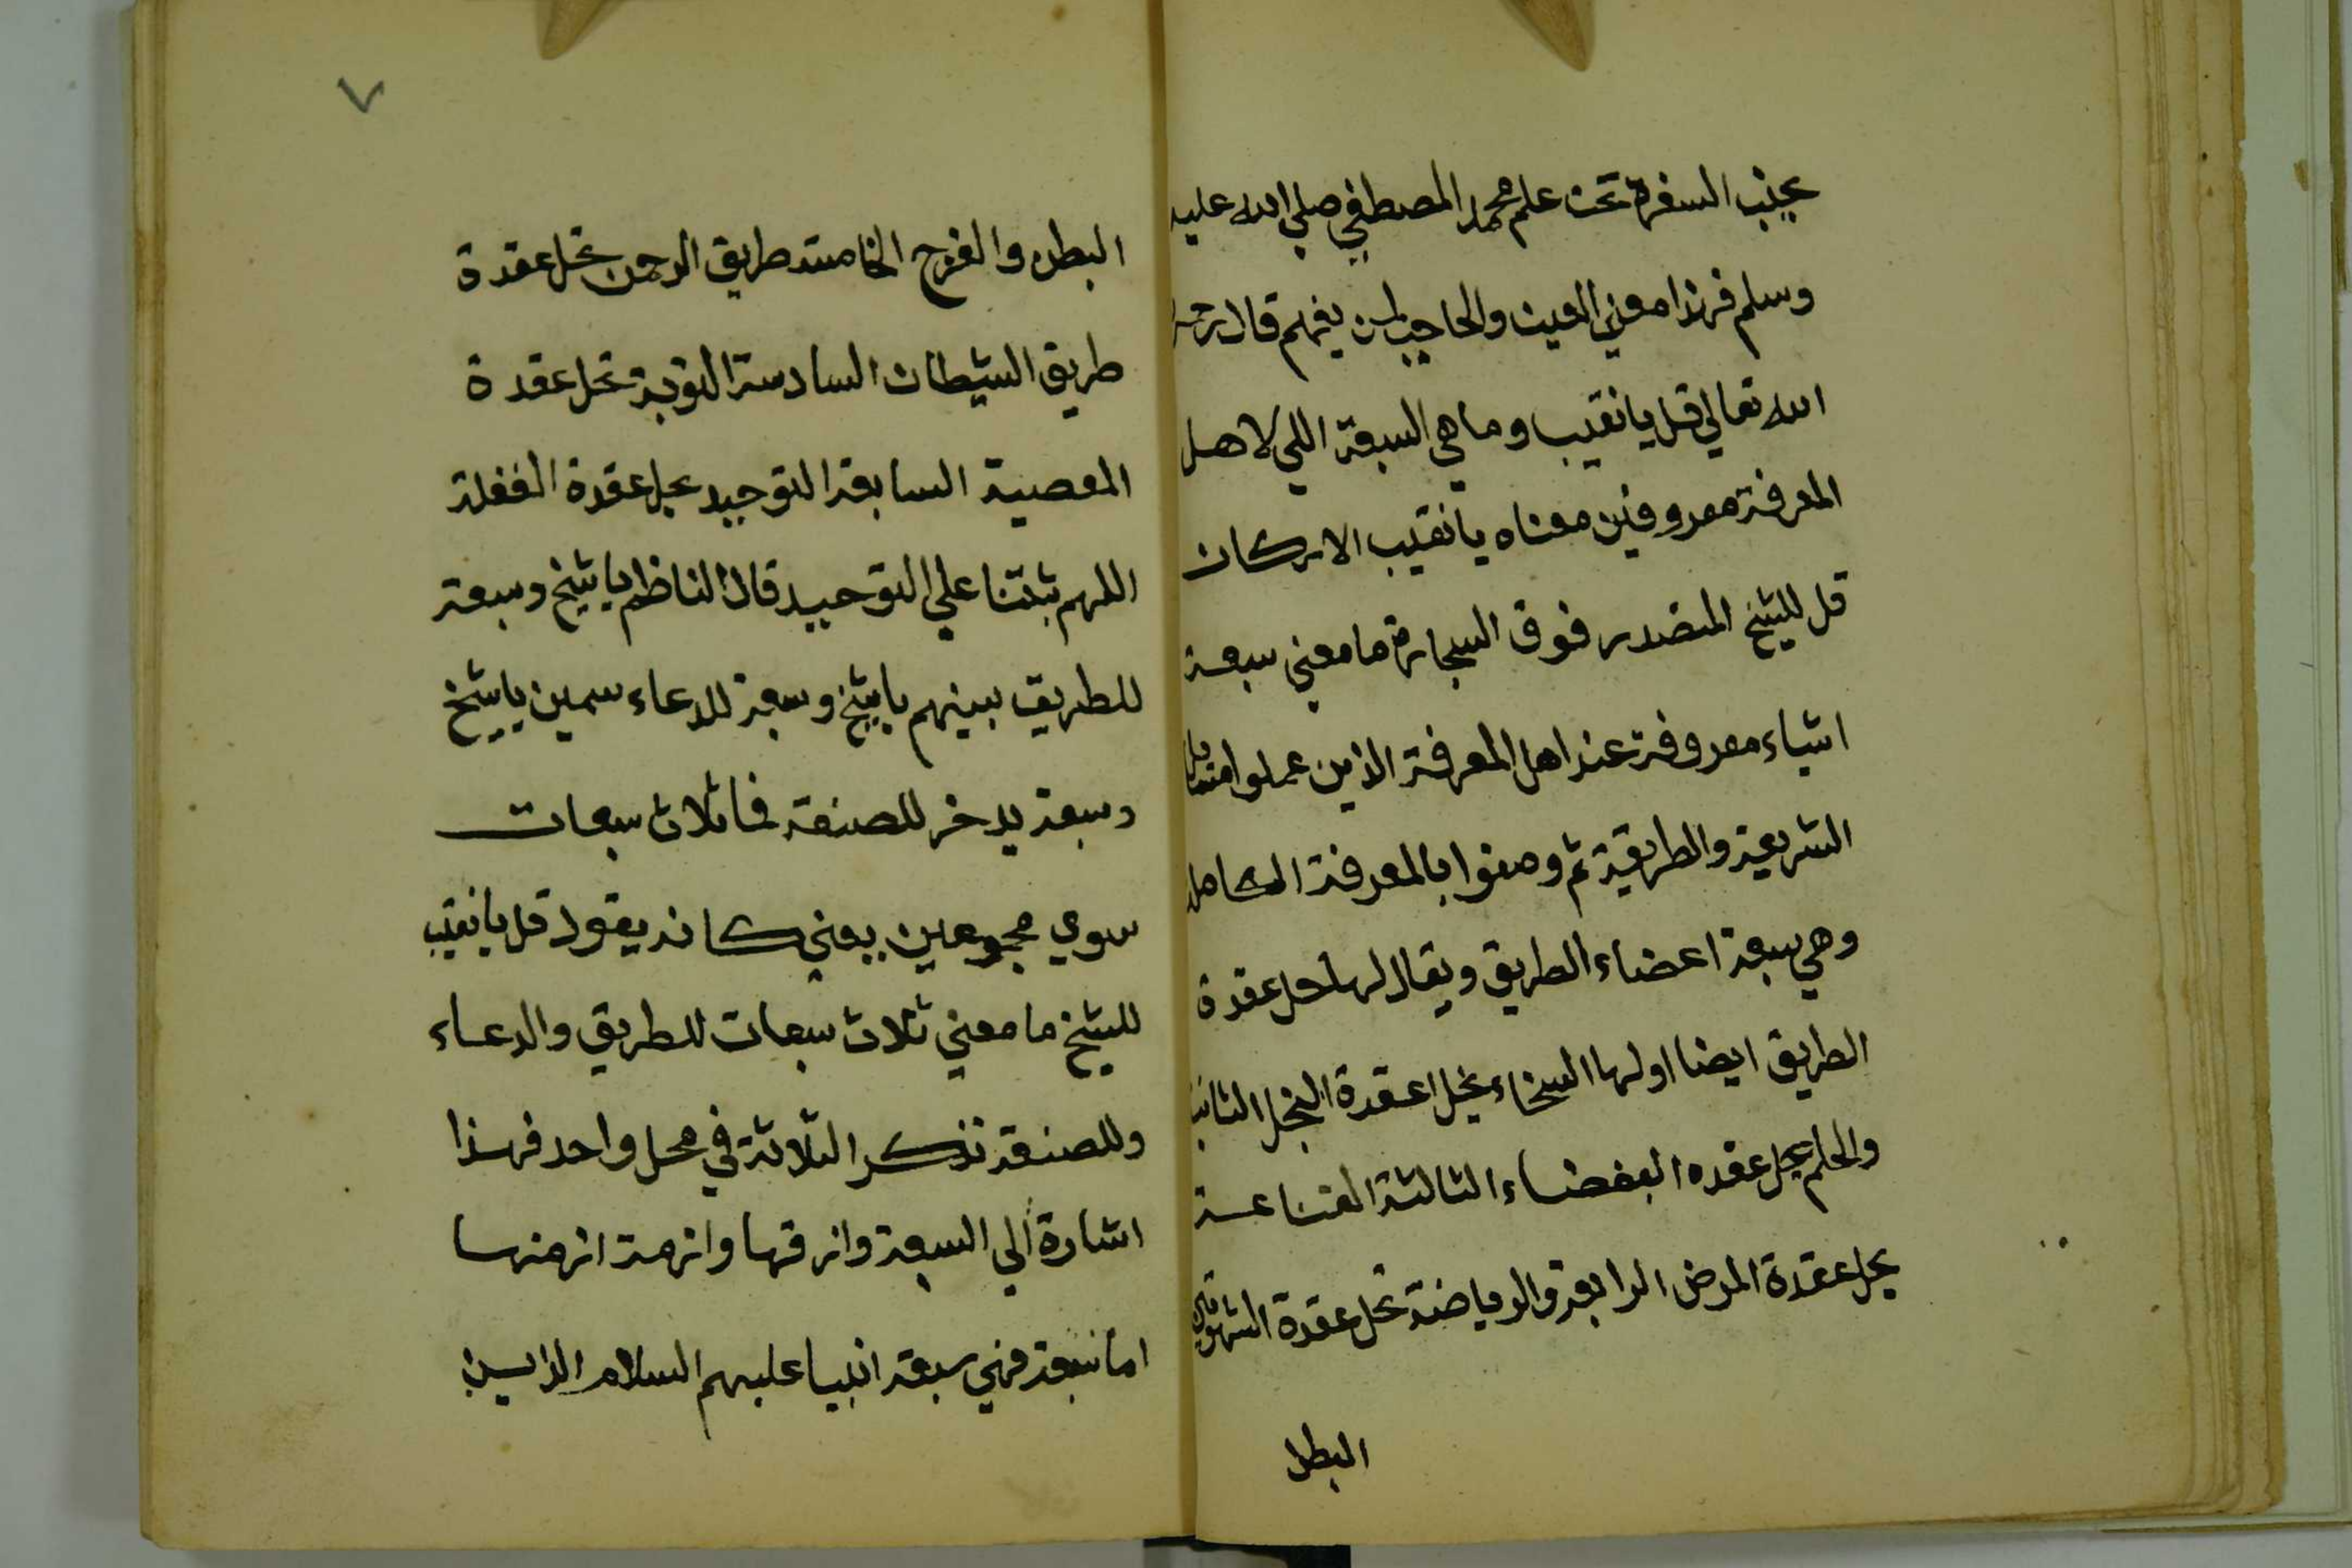 بجنب السفرة تحت علم محمد المصطفي صلي الله عليه
وسلم فهذا معني العين والحاجب لمن يفهم قال رحمه
الله تعالي قل يا نقيب وما هي السبعة اللي لاهل
المعرفة معروفين معناه يا نقيب الاركان
قل للشيخ المتصدر فوق السجادة ما معني سبعة
اشياء معروفة عند اهل المعرفة الذين عملوا
الشريعة والطريقة ثم وصفوا بالمعرفة الكاملة
وهي سبعة اعضاء الطريق ويقال لها حل عقدة
الطريق ايضا اولها السخاء يحل عقدة البخل الثانية
والحلم يحل عقده البغضاء الثالثة القناعة
يحل عقدة المرض الرابعة والرياضة تحل عقدة الشهوتين
البطن
٧
البطن والفرج الخامسة طريق الرحمن تحل عقدة
طريق الشيطان السادسة التوبة تحل عقدة
المعصية السابعة التوحيد يحل عقدة الغفلة
اللهم ثبتنا علي التوحيد قال الناظم يا شيخ وسبعة
للطريق بينهم يا شيخ وسبعة للدعاء سمين يا شيخ
وسبعة يدخر للصنعة فا ثلاث سبعات
سوي مجموعين يعني كانه يقول قل يا نقيب
للشيخ ما معني ثلاث سبعات للطريق والدعاء
وللصنعة تذكر الثلاثة في محل واحد فهذا
اشارة الي السبعة وازقها وازمة ازمنها
اما سبعة فهي سبعة انبيا عليهم السلام